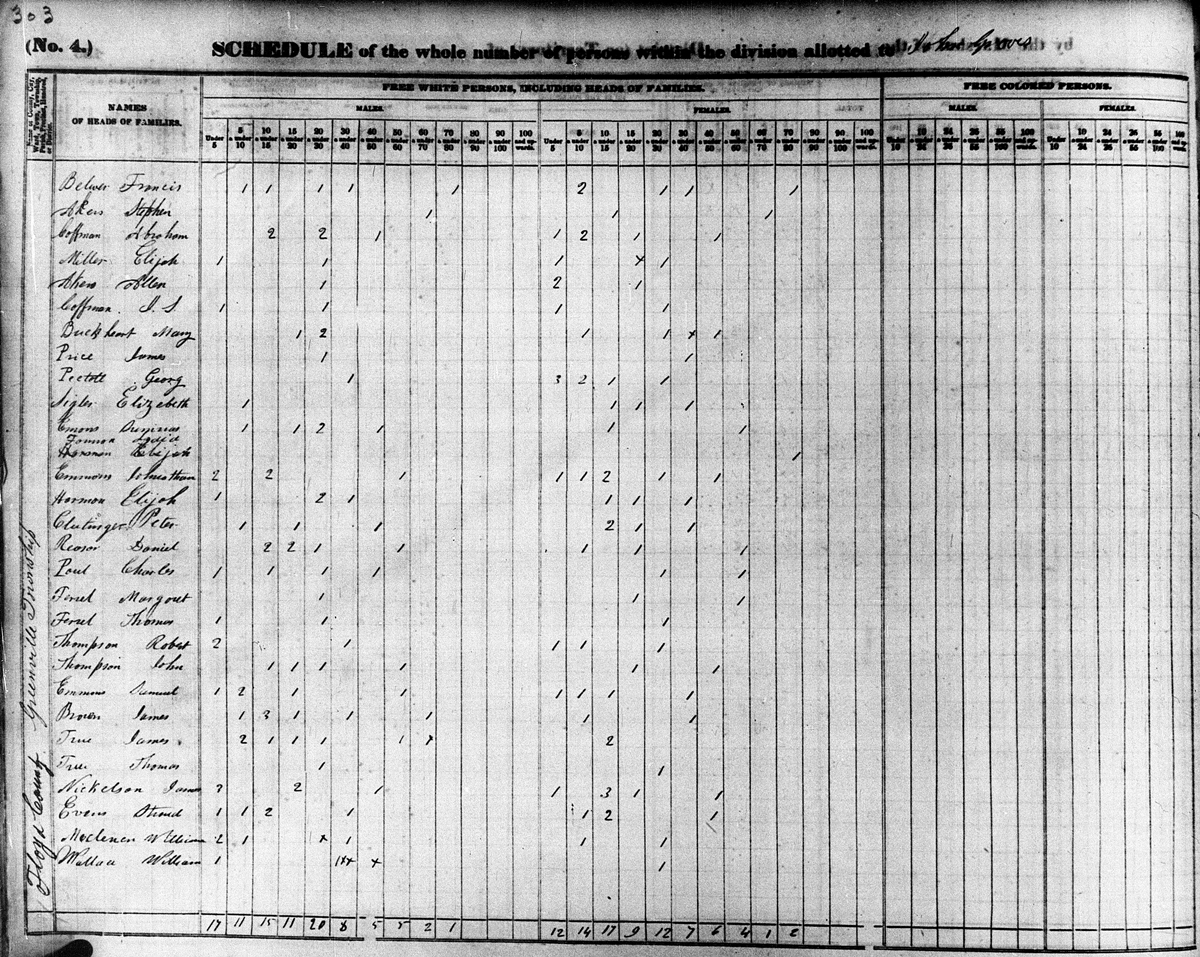 303
(No. 4.) SCHEDULE of the whole number of persons within the division allotted to John Graves
FREE WHITE PERSONS, INCLUDING HEADS OF FAMILIES. FREE COLORED PERSONS.
NAMES OF HEADS OF FAMILIES.
MALES. FEMALES. MALES. FEMALES.
Under 5 5 & under 10 10 & under 15 15 & under 20 20 & under 30 30 & under 40 40 & under 50 50 & under 60 60 & under 70 70 & under 80 80 & under 90 90 & under 100 100 and upwards. Under 5 5 & under 10 10 & under 15 15 & under 20 20 & under 30 30 & under 40 40 & under 50 50 & under 60 60 & under 70 70 & under 80 80 & under 90 90 & under 100 100 and upwards. Under 10 10 & under 24 24 & under 36 36 & under 55 55 & under 100 100 and upwards. Under 10 10 & under 24 24 & under 36 36 & under 55 55 & under 100 100 and upwards.
Francis 1 1 1 1 1 2 1 1 1
Akers Stephen 1 1 1
Coffman Abraham 2 2 1 1 2 1 1
Miller Elijah 1 1 1 x 1
Akers Allen 1 2 1
Coffman J. S. 1 1 1 1
Buckheart Mary 1 2 1 1 x 1
Price James 1 1
Georg 1 3 2 1 1
Elizebeth 1 1 1 1
Emons 1 1 2 1 1 1
Harmon Elijah 1
Emmons Johnathan 2 2 1 1 1 2 1 1
Harmon Elijah 1 2 1 1 1 1
Peter 1 1 1 2 1 1
Reasor Daniel 2 2 1 1 1 1 1
Charles 1 1 1 1 1 1
Margaret 1 1 1
Thomas 1 1 1
Thompson Robert 2 1 1 1 1
Thompson John 1 1 1 1 1 1
Emmons Samuel 1 2 1 1 1 1 1 1
Brown James 1 3 1 1 1 1 1
True James 2 1 1 1 1 x 2
True Thomas 1 1
Nickelson James 2 1 1 3 1 1
Evens 1 1 2 1 1 2 1
William 2 1 x 1 1 1
Wallace William 1 1
17 11 15 11 20 8 5 5 2 1 12 14 17 9 12 7 6 4 1 2
Floyd County Greenville Township